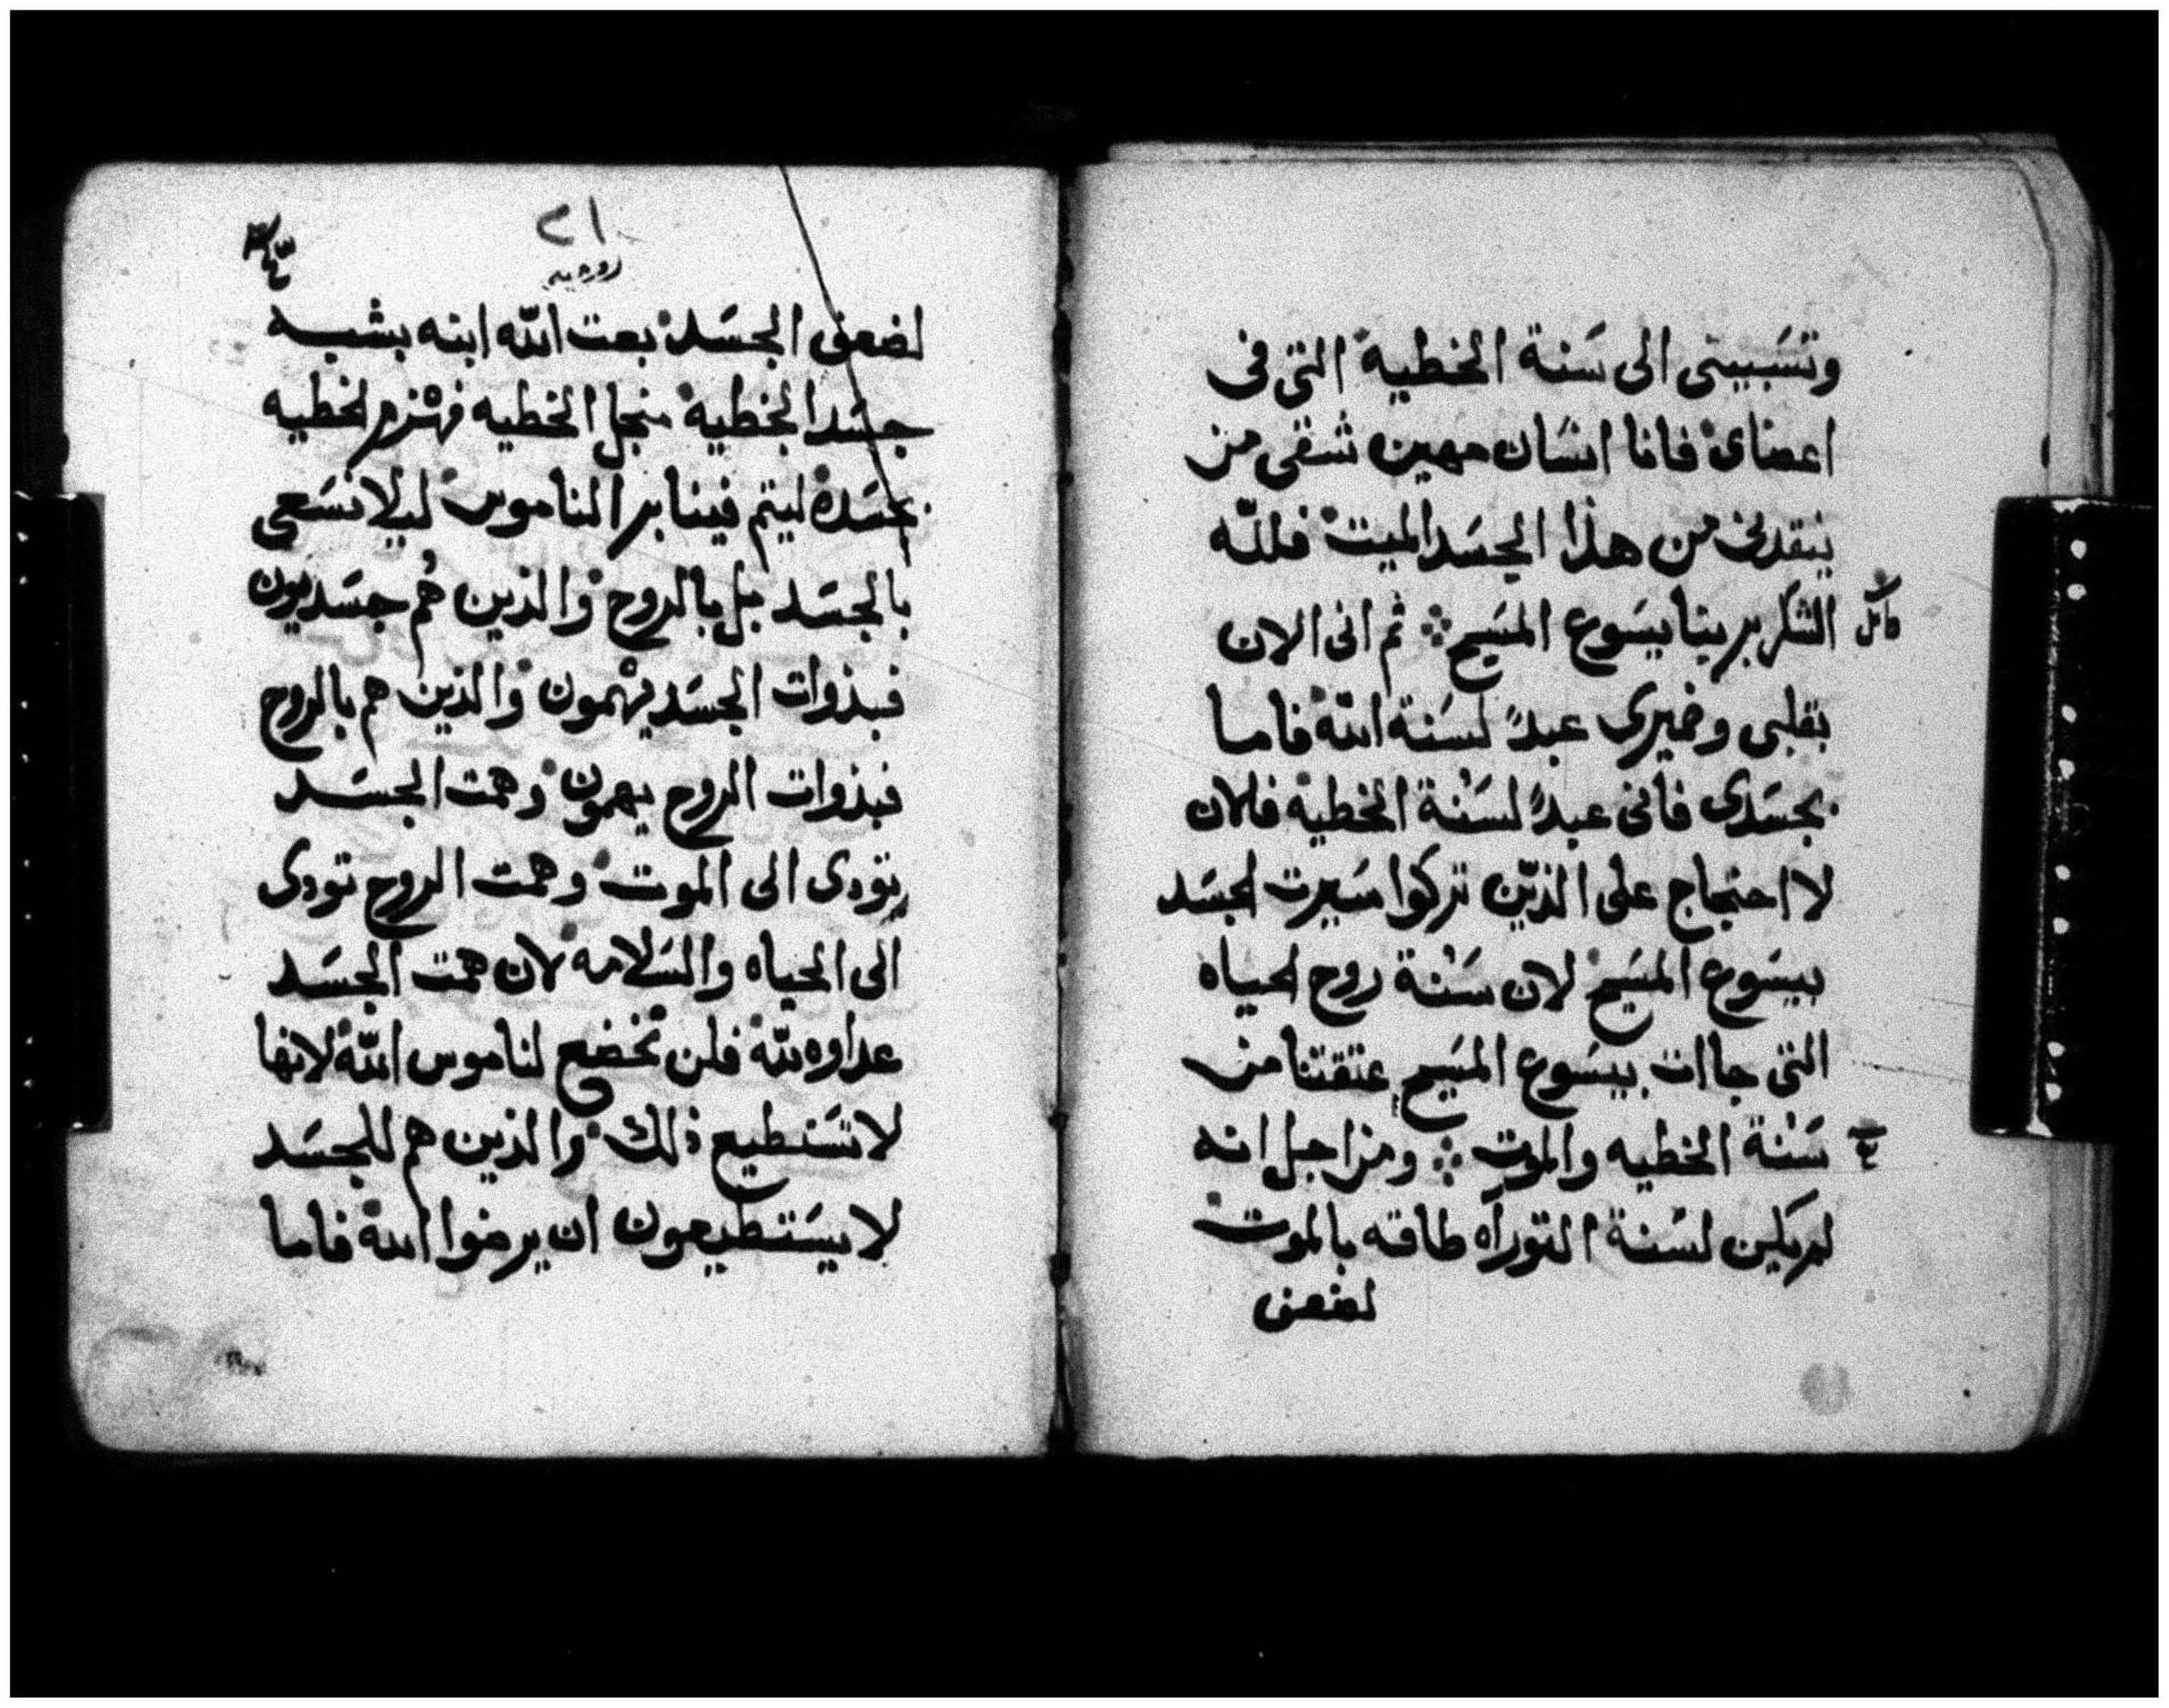 وتسَبيتى الى سَنة الخطية التى فى
اعضاى فانا انسَان مهين شقى من
ينقدنى من هذا الجسَد الميت فللّه
كامل الشكر بربنا يسَوع المسَيح ثم انى الان
بقلبى وضميرى عبدً لسَنة الله فاما
بجسَدى فانى عبدً لسَنة الخطية فلان
لا احتجاج على الذيّن تركوا سَيرت الجسَد
بيسَوع المسَيح لان سَنة روح الحياه
التى جاات بيسَوع المسَيح عتقتنا من
سَنة الخطيه والموت ومن اجل انه
لم يكن لسَنة التوراه طاقه بالموت
لضعف
٢١
روميه
لضعف الجسَد بعت اللّه ابنه بشبه
جسَد الخطية منجل الخطيه فهزم الخطيه
بجسَده ليتم فينا بر الناموس ليلا نسَعى
بالجسَد بل بالروح والذين هُم جسَديون
فبذوات الجسَد يهمون والذين هم بالروح
فبذوات الروح يهمون وهمت الجسَد
تودى الى الموت وهمت الروح تودى
الى الحياه والسَلامه لان همت الجسَد
عداوه للّه فلن تخضع لناموس اللّه لانها
لا تسَتطيع ذلك والذين هم للجسَد
لا يسَتطيعون ان يرضوا الله فاما